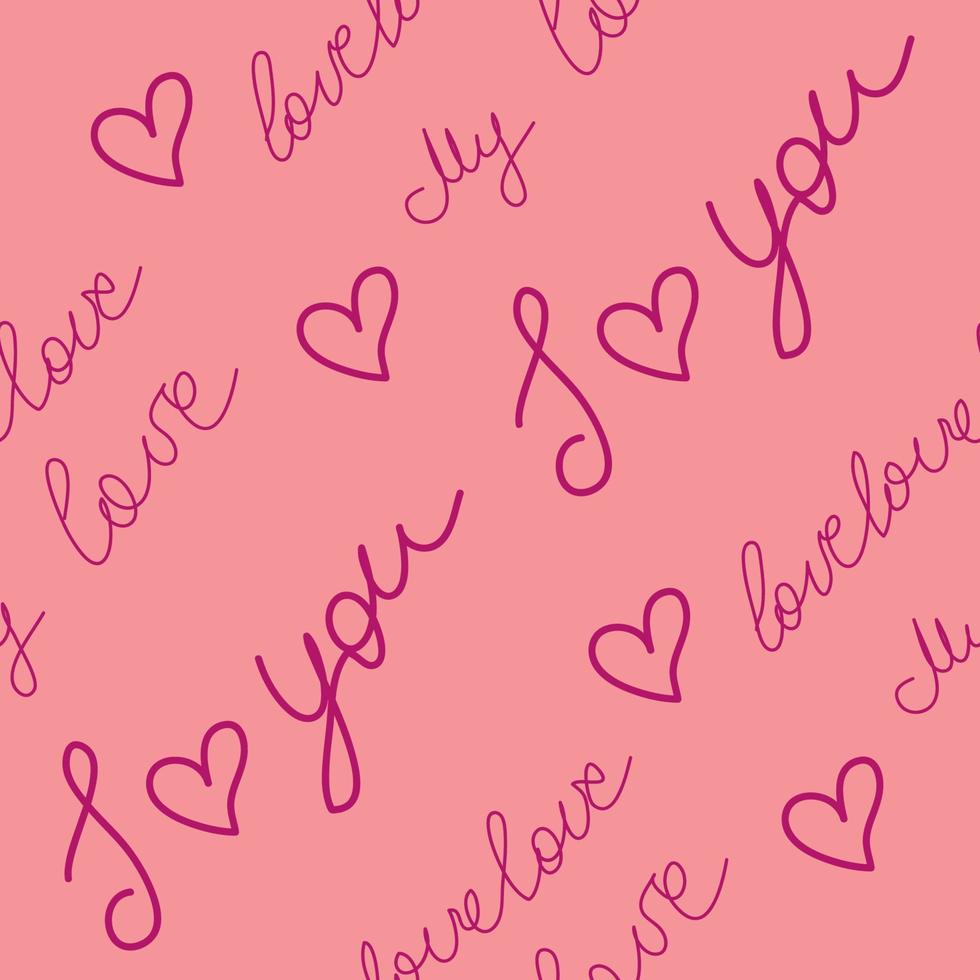 lovelo
lo
My
I ♡ you
love
love
lovelove
y
I ♡ you
My
lovelove
love